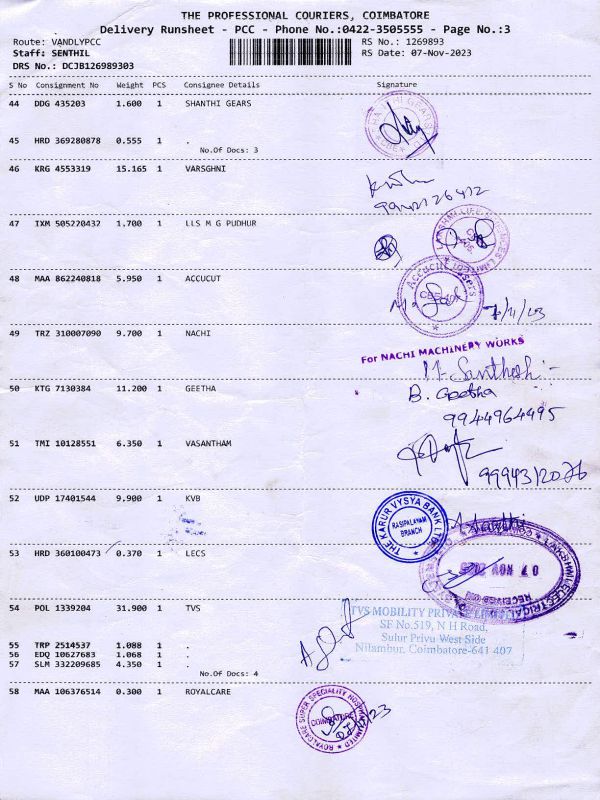 THE PROFESSIONAL COURIERS, COIMBATORE
Delivery Runsheet - PCC - Phone No.:0422-3505555 - Page No.:3
Route: VANDLYPCC RS No.: 1269893
Staff: SENTHIL RS Date: 07-Nov-2023
DRS No.: DCJB126989303
S No Consignment No Weight PCS Consignee Details Signature
44 DDG 435203 1.600 1 SHANTHI GEARS
45 HRD 369280878 0.555 1 .
No.Of Docs: 3
46 KRG 4553319 15.165 1 VARSGHNI
47 IXM 505220432 1.700 1 LLS M G PUDHUR
48 MAA 862240818 5.950 1 ACCUCUT
Accucut
7/11/23
49 TRZ 310007090 9.700 1 NACHI
For NACHI MACHINERY WORKS
Santhosh
50 KTG 7130384 11.200 1 GEETHA
B. Geetha
9944964495
51 TMI 10128551 6.350 1 VASANTHAM
52 UDP 17401544 9.900 1 KVB
THE KARUR VYSYA BANK LTD
RASIPALAYAM
BRANCH
53 HRD 360100473 0.370 1 LECS
07 NOV
RECEIVED
54 POL 1339204 31.900 1 TVS
TVS MOBILITY PRIVATE LIMITED
SF No.519, N H Road,
Sulur Privu West Side
Nilambur, Coimbatore-641 407
55 TRP 2514537 1.088 1 .
56 EDQ 10627683 1.068 1 .
57 SLM 332209685 4.350 1 .
No.Of Docs: 4
58 MAA 106376514 0.300 1 ROYALCARE
ROYALCARE SUPER SPECIALITY HOSPITAL LIMITED
COIMBATORE